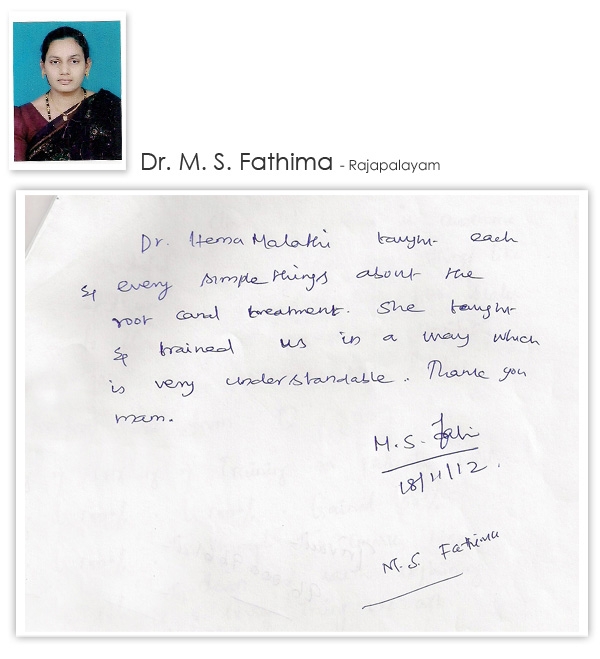 Dr. M. S. Fathima - Rajapalayam
Dr. Hema Malathi taught each
& every simple things about the
root canal treatment. She taught
& trained us in a way which
is very understandable. Thank you
mam.
M. S. Fathi
18/11/12.
M. S. Fathima